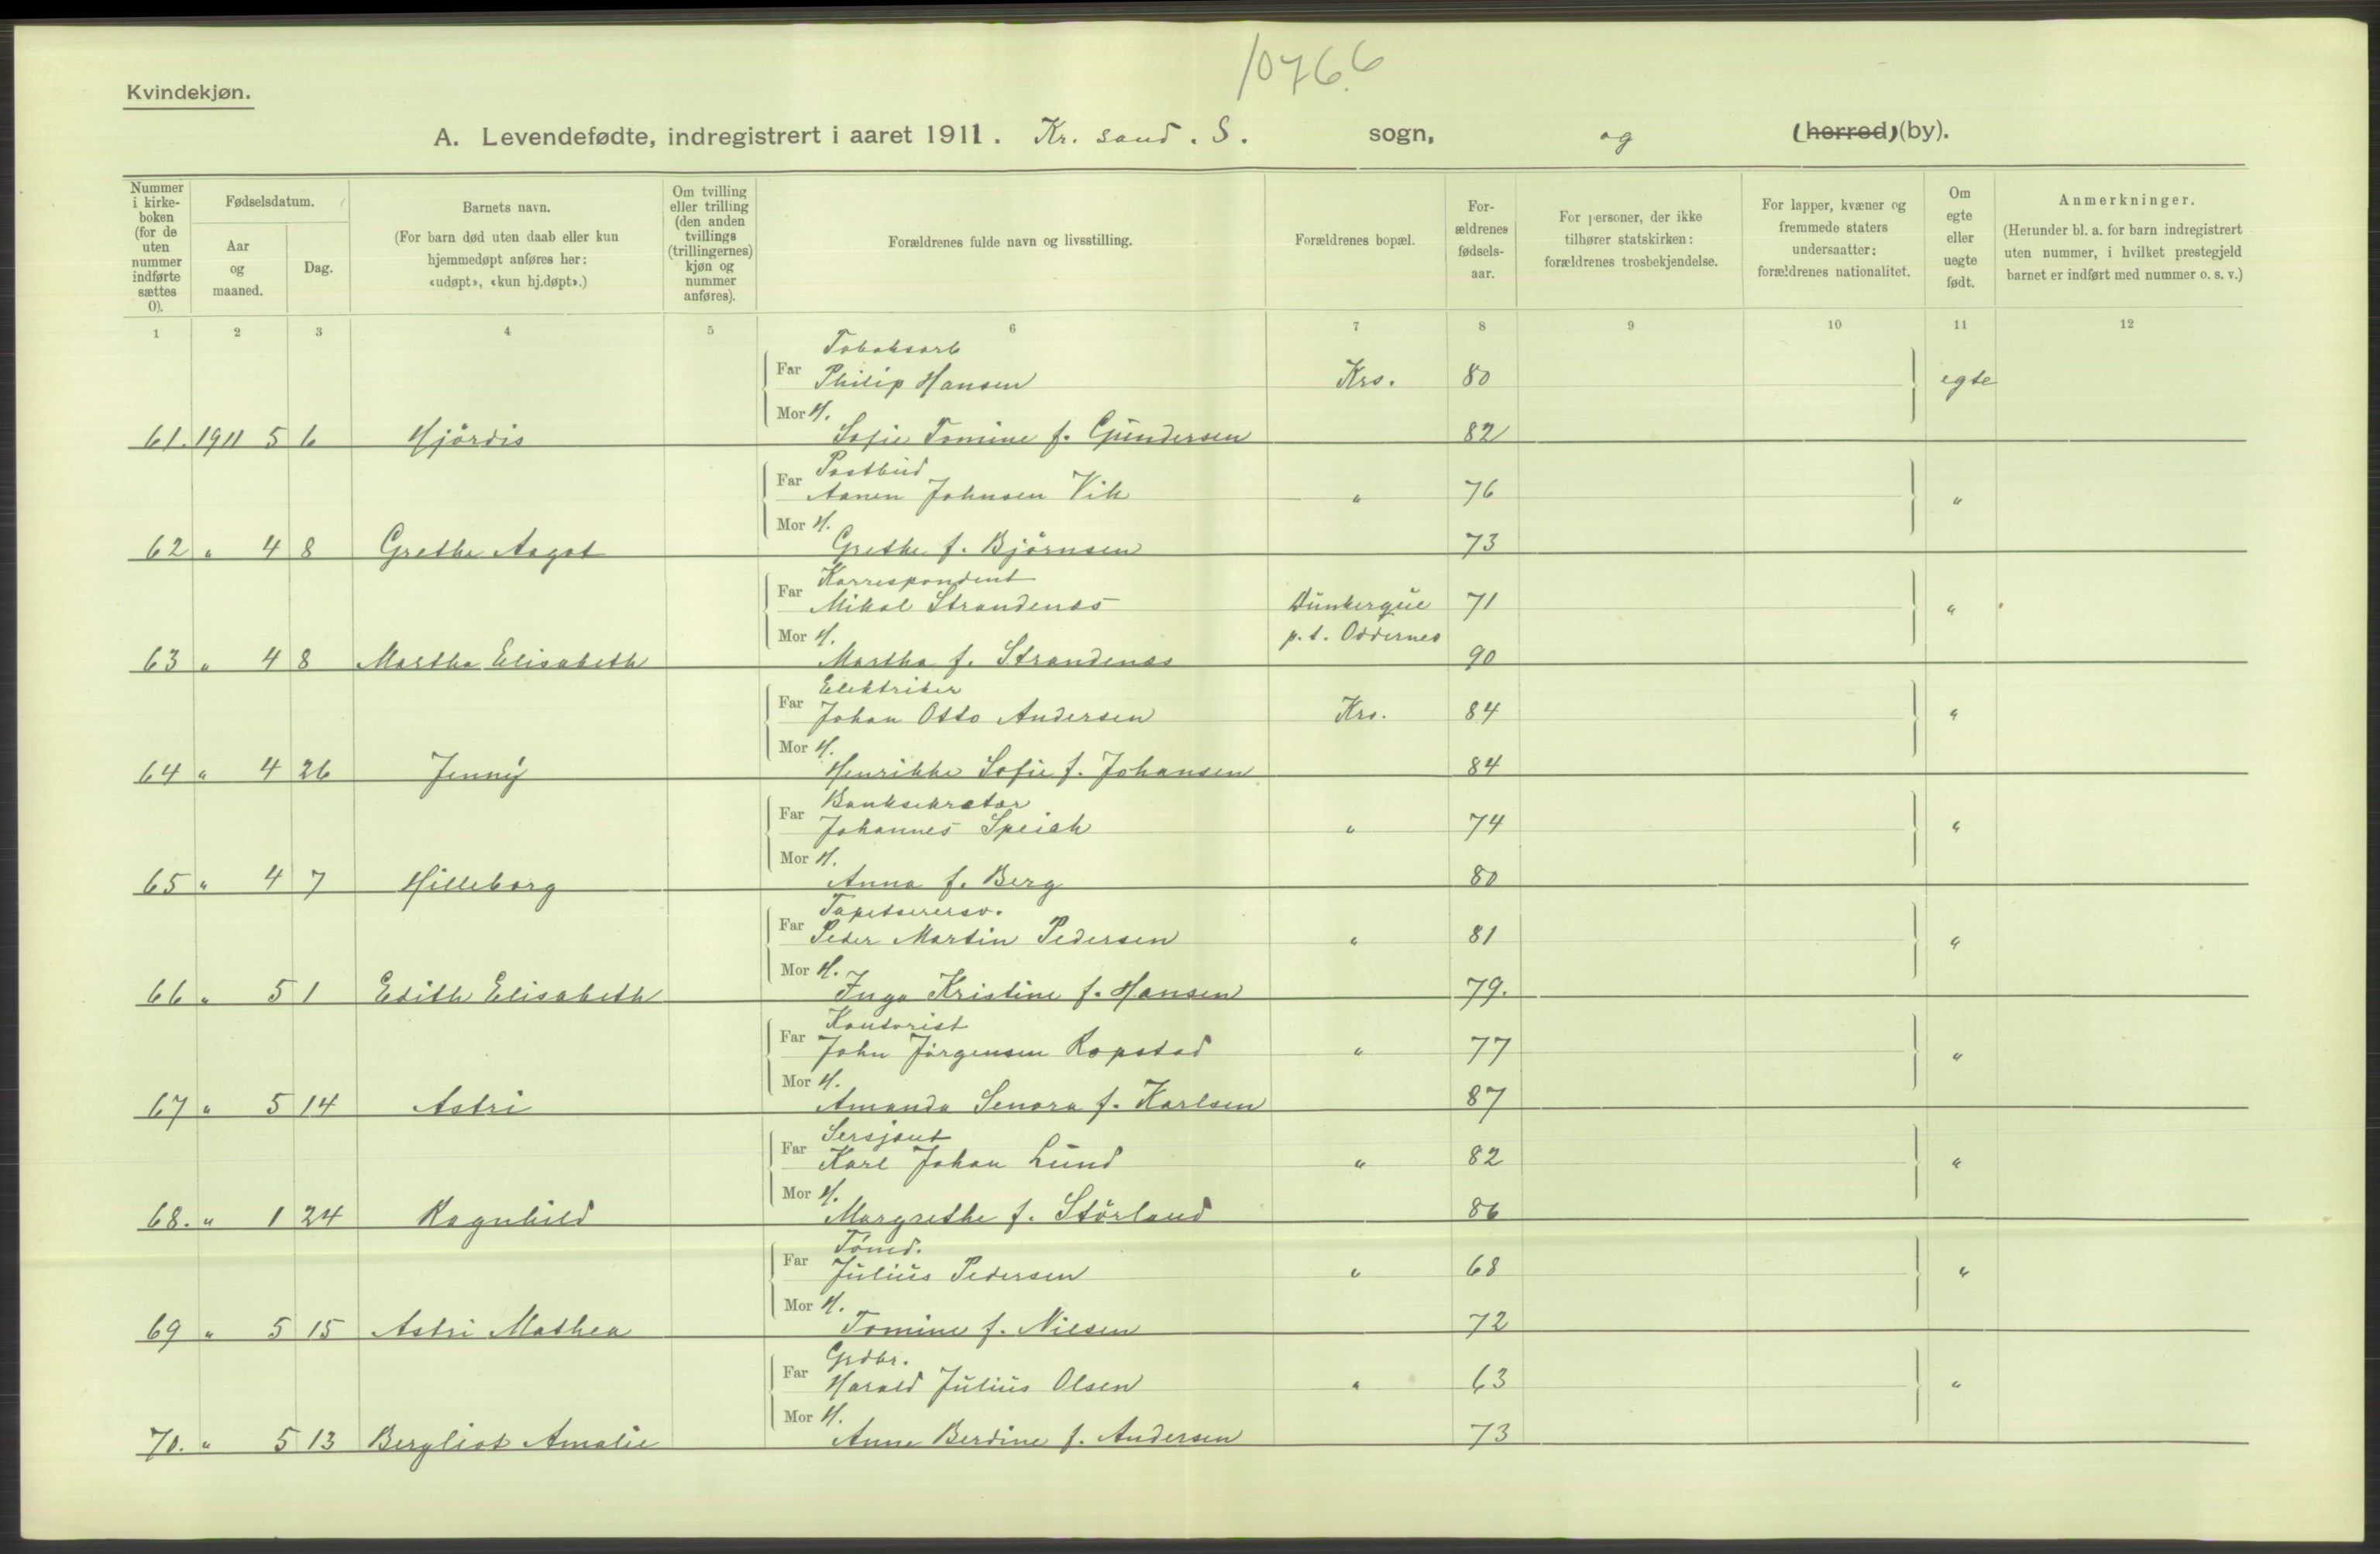 10766
Kvindekjøn.
A. Levendefødte, indregistrert i aaret 1911. Kr. sand. S. sogn, og (herred) (by).
Nummer i kirkeboken (for de uten nummer indførte sættes 0).
Fødselsdatum.
Aar og maaned.
Dag.
Barnets navn.
(For barn død uten daab eller kun hjemmedøpt anføres her: «udøpt», «kun hj.døpt».)
Om tvilling eller trilling (den anden tvillings (trillingernes) kjøn og nummer anføres).
Forældrenes fulde navn og livsstilling.
Forældrenes bopæl.
Forældrenes fødselsaar.
For personer, der ikke tilhører statskirken: forældrenes trosbekjendelse.
For lapper, kvæner og fremmede staters undersaatter: forældrenes nationalitet.
Om egte eller uegte født.
Anmerkninger.
(Herunder bl. a. for barn indregistrert uten nummer, i hvilket prestegjeld barnet er indført med nummer o. s. v.)
1 2 3 4 5 6 7 8 9 10 11 12
Tobaksarb
Far Philip Hansen Krs. 80 egte
Mor H.
61. 1911 5 6 Hjördis Sofie Tomine f. Gundersen 82
Postbud
Far Aanen Johnsen Vik " 76 "
Mor H.
62 " 4 8 Grethe Aagot Grethe f. Björnsen 73
Korrespondent
Far Mikal Strandenæs Dunkerque 71 "
Mor H. p. t. Oddernes
63 " 4 8 Martha Elisabeth Martha f. Strandenæs 90
Elektriker
Far Johan Otto Andersen Krs. 84 "
Mor H.
64 " 4 26 Jenny Henrikke Sofie f. Johansen 84
Banksekretær
Far Johannes Speich " 74 "
Mor H.
65 " 4 7 Hilleborg Anna f. Berg 80
Tapetserersv.
Far Peder Martin Pedersen " 81 "
Mor H.
66 " 5 1 Edith Elisabeth Inga Kristine f. Hansen 79.
Kontorist
Far John Jörgensen Ropstad " 77 "
Mor H.
67 " 5 14 Astri Amanda Senora f. Karlsen 87
Sersjant
Far Karl Johan Lund " 82 "
Mor H.
68. " 1 24 Ragnhild Margrethe f. Störland 86
Tömd.
Far Julius Pedersen " 68 "
Mor H.
69 " 5 15 Astri Mathea Tomine f. Nilsen 72
Grdbr.
Far Harald Julius Olsen " 63 "
Mor H.
70. " 5 13 Bergliot Amalie Anne Berdine f. Andersen 73